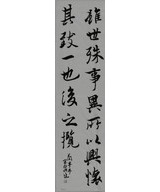 雖世殊事異所以興懷
其致一也後之攬